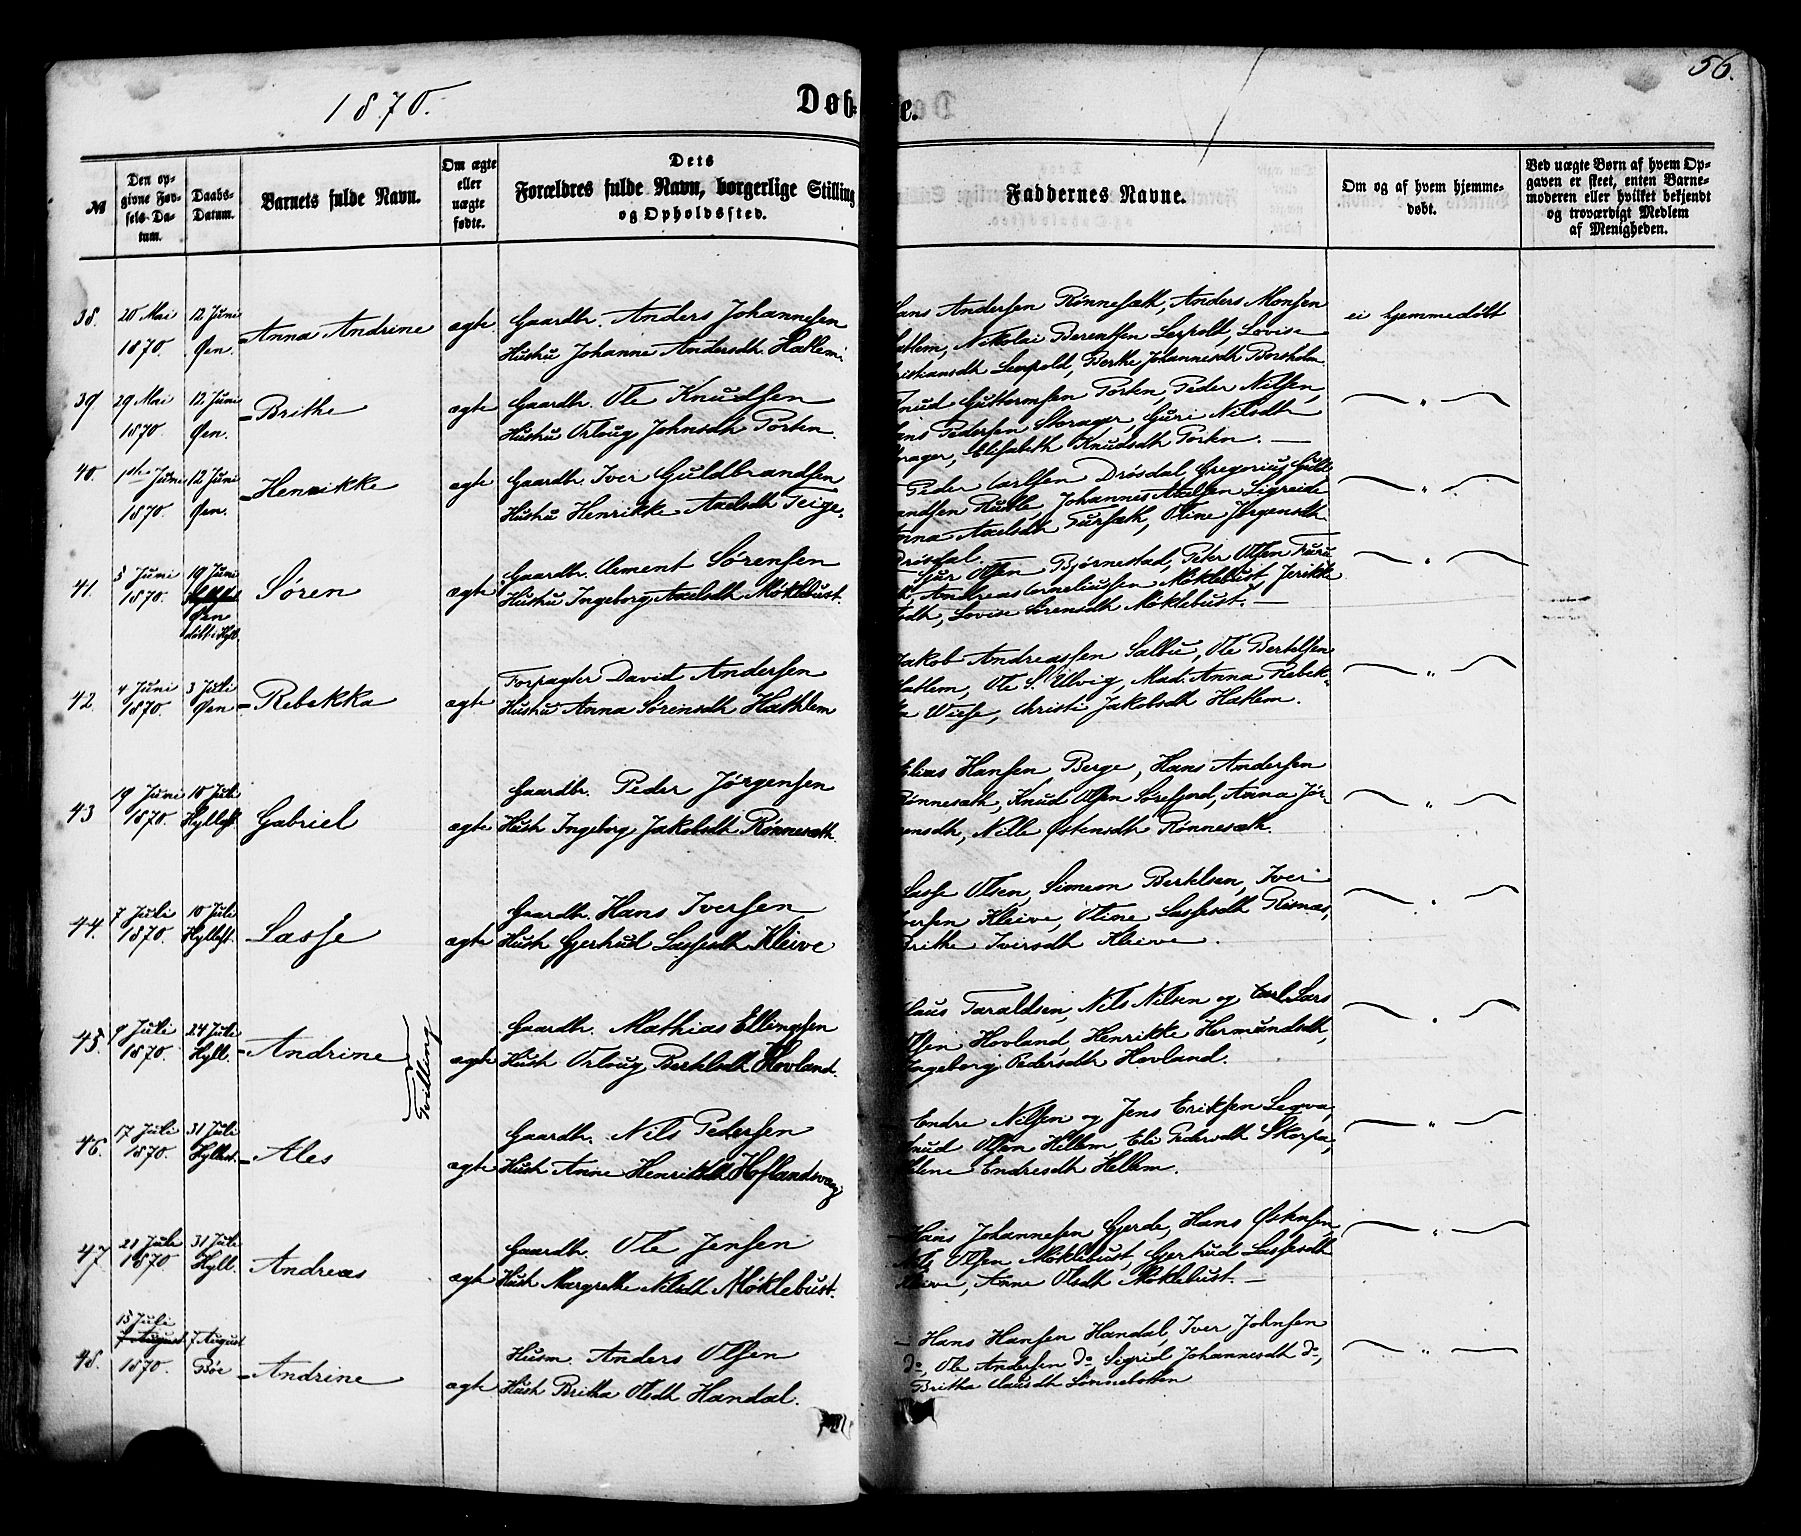 56.
1870.
Døb-
te.
№
Den op-
givne Fød-
sels-Da-
tum.
Daabs-
Datum.
Barnets fulde Navn.
Om ægte
eller
uægte
fødte.
Dets
Forældres fulde Navn, borgerlige Stilling
og Opholdssted.
Faddernes Navne.
Om og af hvem hjemme-
døbt.
Ved uægte Børn af hvem Op-
gaven er skeet, enten Barne-
moderen eller hvilket bekjendt
og troværdigt Medlem
af Menigheden.
38.
20 Mai
1870.
12 Juni
Øen.
Anna Andrine
ægte
Gaardbr. Anders Johannesen
Hustru Johanne Andersdh. Hatlem
Hans Andersen Rønnesæth, Anders Monsen
Hatlem, Nikolai Berentsen Leepold, Lovise
Kristiansdh Leepold, Berthe Johannesdh Borsholm
ei hjemmedøbt
39
29 Mai
1870.
12 Juni
Øen.
Brithe
ægte
Gaardbr. Ole Knudsen
Hustru Orloug Johnsdh Porten.
Knud Guttormsen Porten, Peder Nilsen,
Hans Pedersen Storager, Guri Nilsdh
Storager, Elisabeth Knudsdh Porten. —
— " —
40.
1ste Juni
1870.
12 Juni
Øen.
Henrikke
ægte
Gaardbr. Iver Guldbrandsen
Hustru Henrikke Axelsdh Teige.
Peder Carlsen Drøsdal, Gregorius Guld-
brandsen Hulle, Johannes Axelsen Sigreide
Anna Axelsdh Fursæth, Oline Jørgensdh
Drøsdal.
— " —
41.
5 Juni
1870.
19 Juni
Øen
døbt i Hyll.
Søren
ægte
Gaardbr. Clement Sørensen
Hustru Ingeborg Axelsdh Møklebust.
Sjur Olsen Bjørnestad, Peter Olsen Furu
Andreas Corneliussen Møklebust, Jerikke
Lovise Sørensdh Møklebust. —
— " —
42.
4 Juni
1870.
3 Juli
Øen
Rebekka
ægte
Forpagter David Andersen
Hustru Anna Sørensdh Hathlem
Jakob Andreassen Salbu, Ole Bertelsen
Hatlem, Ole S. Ulvig, Mad. Anna Rebek-
ka Wiese, Christi Jakobsdh Hatlem.
— " —
43
19 Juni
1870.
10 Juli
Hyllest.
Gabriel
ægte
Gaardbr. Peder Jørgensen
Hust Ingeborg Jakobsdh Rønnesæth.
Elias Hansen Berge, Hans Andersen
Rønnesæth, Knud Olsen Sørefjord, Anna Jør-
gensdh, Nille Østensdh Rønnesæth.
— " —
44.
7 Juli
1870.
10 Juli
Hyllest.
Lasse
ægte
Gaardbr. Hans Iversen
Hust Gjertrud Lassesdh Kleive
Lasse Olsen, Simeon Bertelsen, Iver
Iversen Kleive, Oline Lassesdh Risnæs,
Brithe Iversdh Kleive.
— " —
45.
9 Juli
1870.
24 Juli
Hyll.
Andrine
Tvilling
ægte
Gaardbr. Mathias Ellingsen
Hust Orloug Bertelsdh Hovland.
Claus Taraldsen, Nils Nilsen og Carl Lars
Olsen Hovland, Henrikke Hermundsdh,
Ingeborg Pedersdh Hovland.
— " —
46.
17 Juli
1870.
31 Juli
Hyllest.
Ales
ægte
Gaardbr. Nils Pedersen
Hust Anne Henriksdh Hoflandsvag
Endre Nilsen og Jens Eriksen Leqva,
Knud Olsen Hellem, Eli Pedersdh Skorpa,
Oline Endresdh Hellem.
— " —
47
21 Juli
1870
31 Juli
Hyll.
Andreas
ægte
Gaardbr. Ole Jensen
Hust Margrethe Nilsdh Møklebust.
Hans Johannesen Gjerde, Hans Østensen
Nils Olsen Møklebust, Gjertrud Lassesdh
Kleive, Anne Olsdh Møklebust. —
— " —
48.
15 Juli
7 August
1870.
7 August
Bøe
Andrine
ægte
Husm. Anders Olsen
Hust Britha Olsdh Handal.
— Hans Hansen Handal, Iver Johnsen
do, Ole Andersen do, Sigrid Johannesdh do,
Britha Clausdh Lønnebotten
— " —